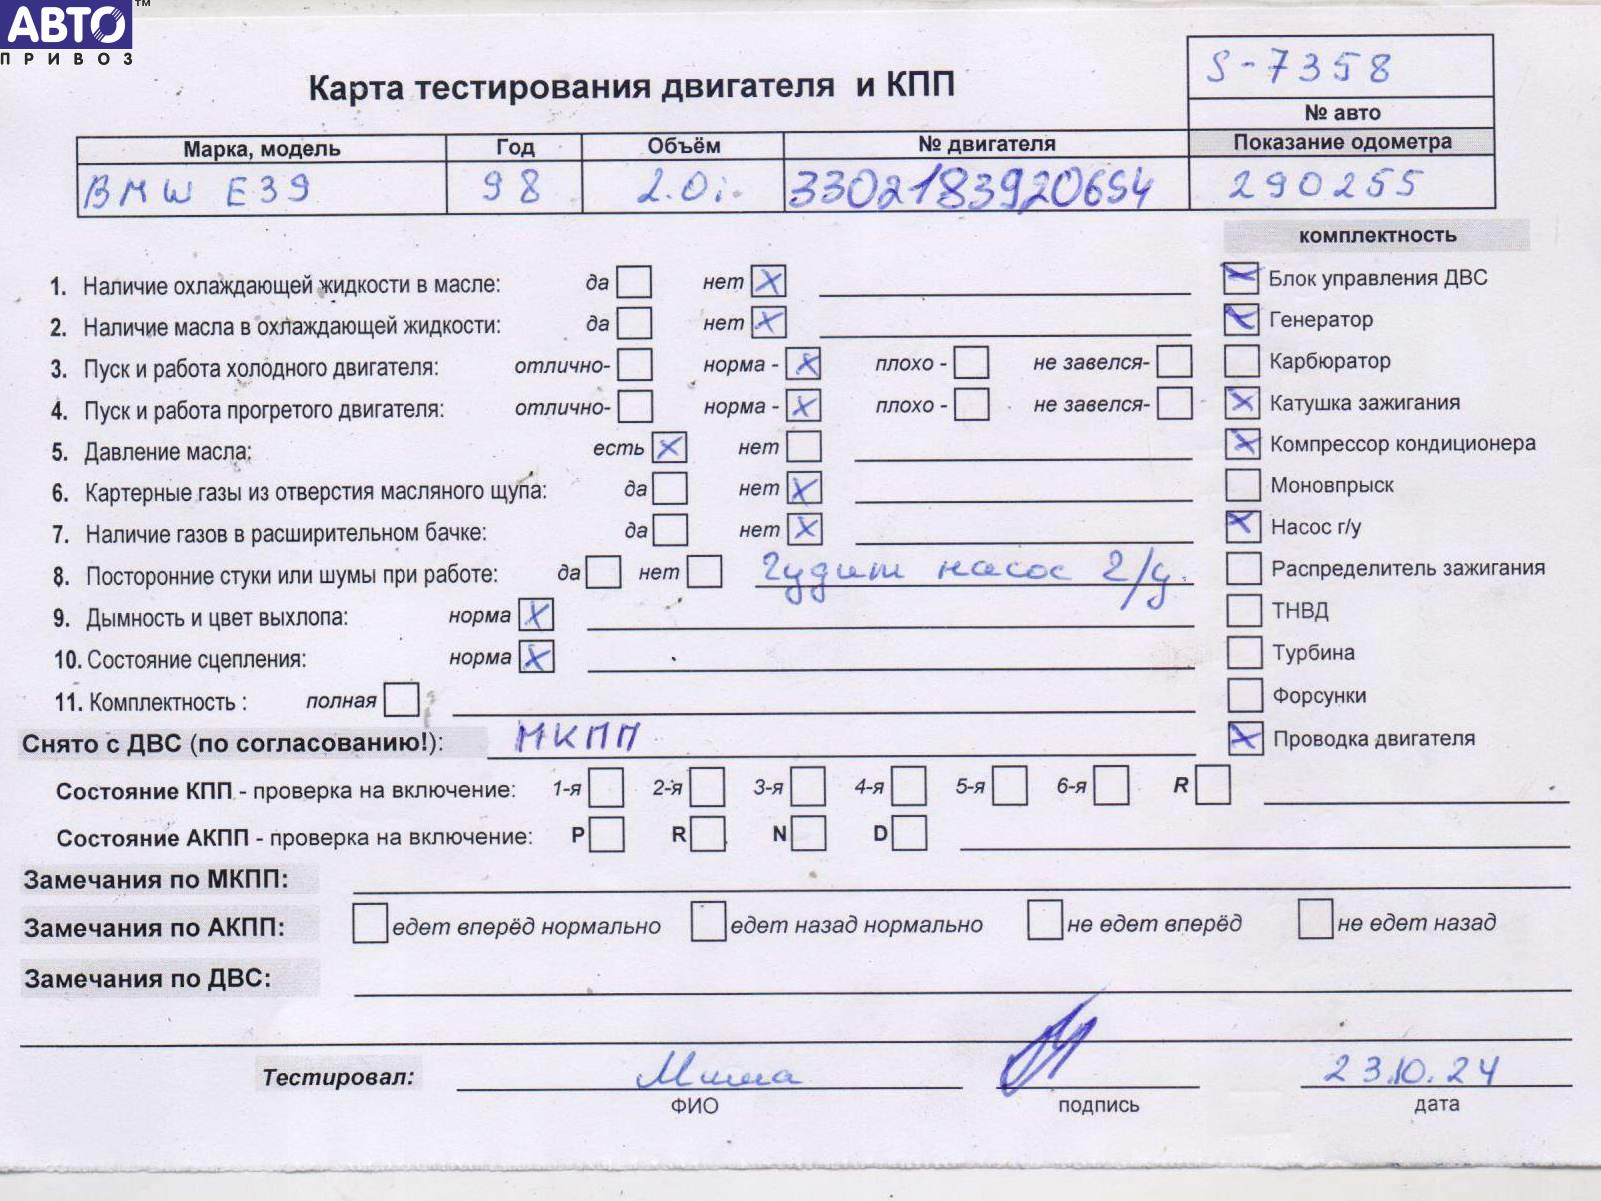 АВТО™
ПРИВОЗ
S-7358
Карта тестирования двигателя и КПП
№ авто
Марка, модель Год Объём № двигателя Показание одометра
BMW E39 98 2.0i. 3302183920654 290255
комплектность
1. Наличие охлаждающей жидкости в масле: да нет X
Блок управления ДВС
2. Наличие масла в охлаждающей жидкости: да нет X
Генератор
3. Пуск и работа холодного двигателя: отлично- норма - X плохо - не завелся-
Карбюратор
4. Пуск и работа прогретого двигателя: отлично- норма - X плохо - не завелся-
X Катушка зажигания
5. Давление масла: есть X нет
X Компрессор кондиционера
6. Картерные газы из отверстия масляного щупа: да нет X
Моновпрыск
7. Наличие газов в расширительном бачке: да нет X
X Насос г/у
8. Посторонние стуки или шумы при работе: да нет Гудит насос г/у.
Распределитель зажигания
9. Дымность и цвет выхлопа: норма X
ТНВД
10. Состояние сцепления: норма X
Турбина
11. Комплектность : полная
Форсунки
Снято с ДВС (по согласованию!): МКПП
X Проводка двигателя
Состояние КПП - проверка на включение: 1-я 2-я 3-я 4-я 5-я 6-я R
Состояние АКПП - проверка на включение: P R N D
Замечания по МКПП:
Замечания по АКПП: едет вперёд нормально едет назад нормально не едет вперёд не едет назад
Замечания по ДВС:
Тестировал: Миша 23.10.24
ФИО подпись дата